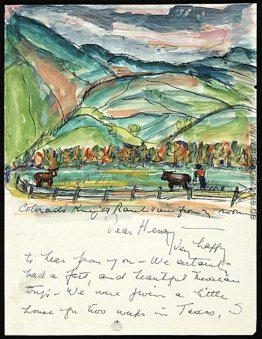 Colorado King's Ranch View from my room
Dear Henry —
Very happy
to hear from you — We certainly
had a fast, and beautiful Mexican
trip — We were given a little
house for two weeks in Texas, S